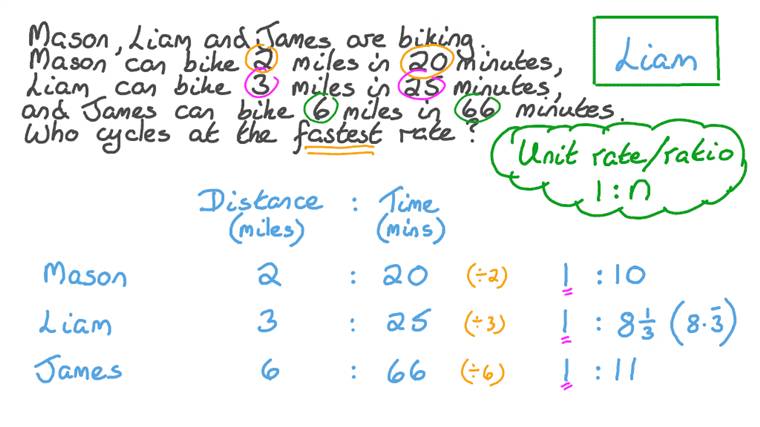 Mason, Liam and James are biking.
Mason can bike 2 miles in 20 minutes,
Liam can bike 3 miles in 25 minutes,
and James can bike 6 miles in 66 minutes.
Who cycles at the fastest rate?
Liam
Unit rate/ratio
1:n
Distance : Time
(miles) (mins)
Mason 2 : 20 (÷2) 1 : 10
Liam 3 : 25 (÷3) 1 : 8 1/3 (8.3̄)
James 6 : 66 (÷6) 1 : 11